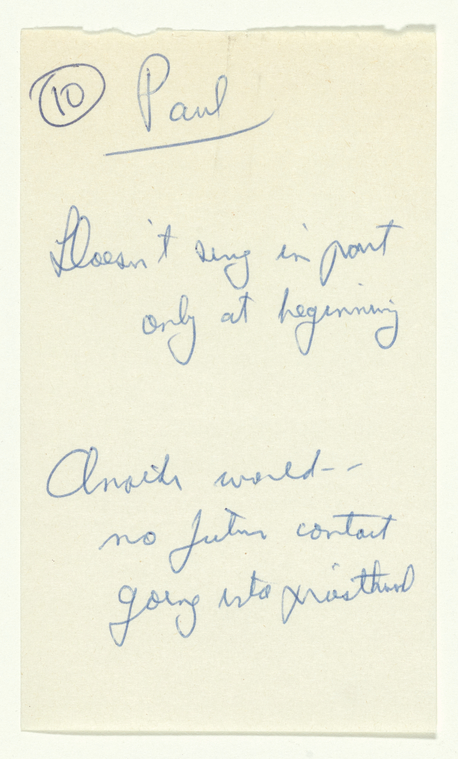 10 Paul
Doesn't sing in part
only at beginning
Anoith world--
no futur contact
going into priesthood